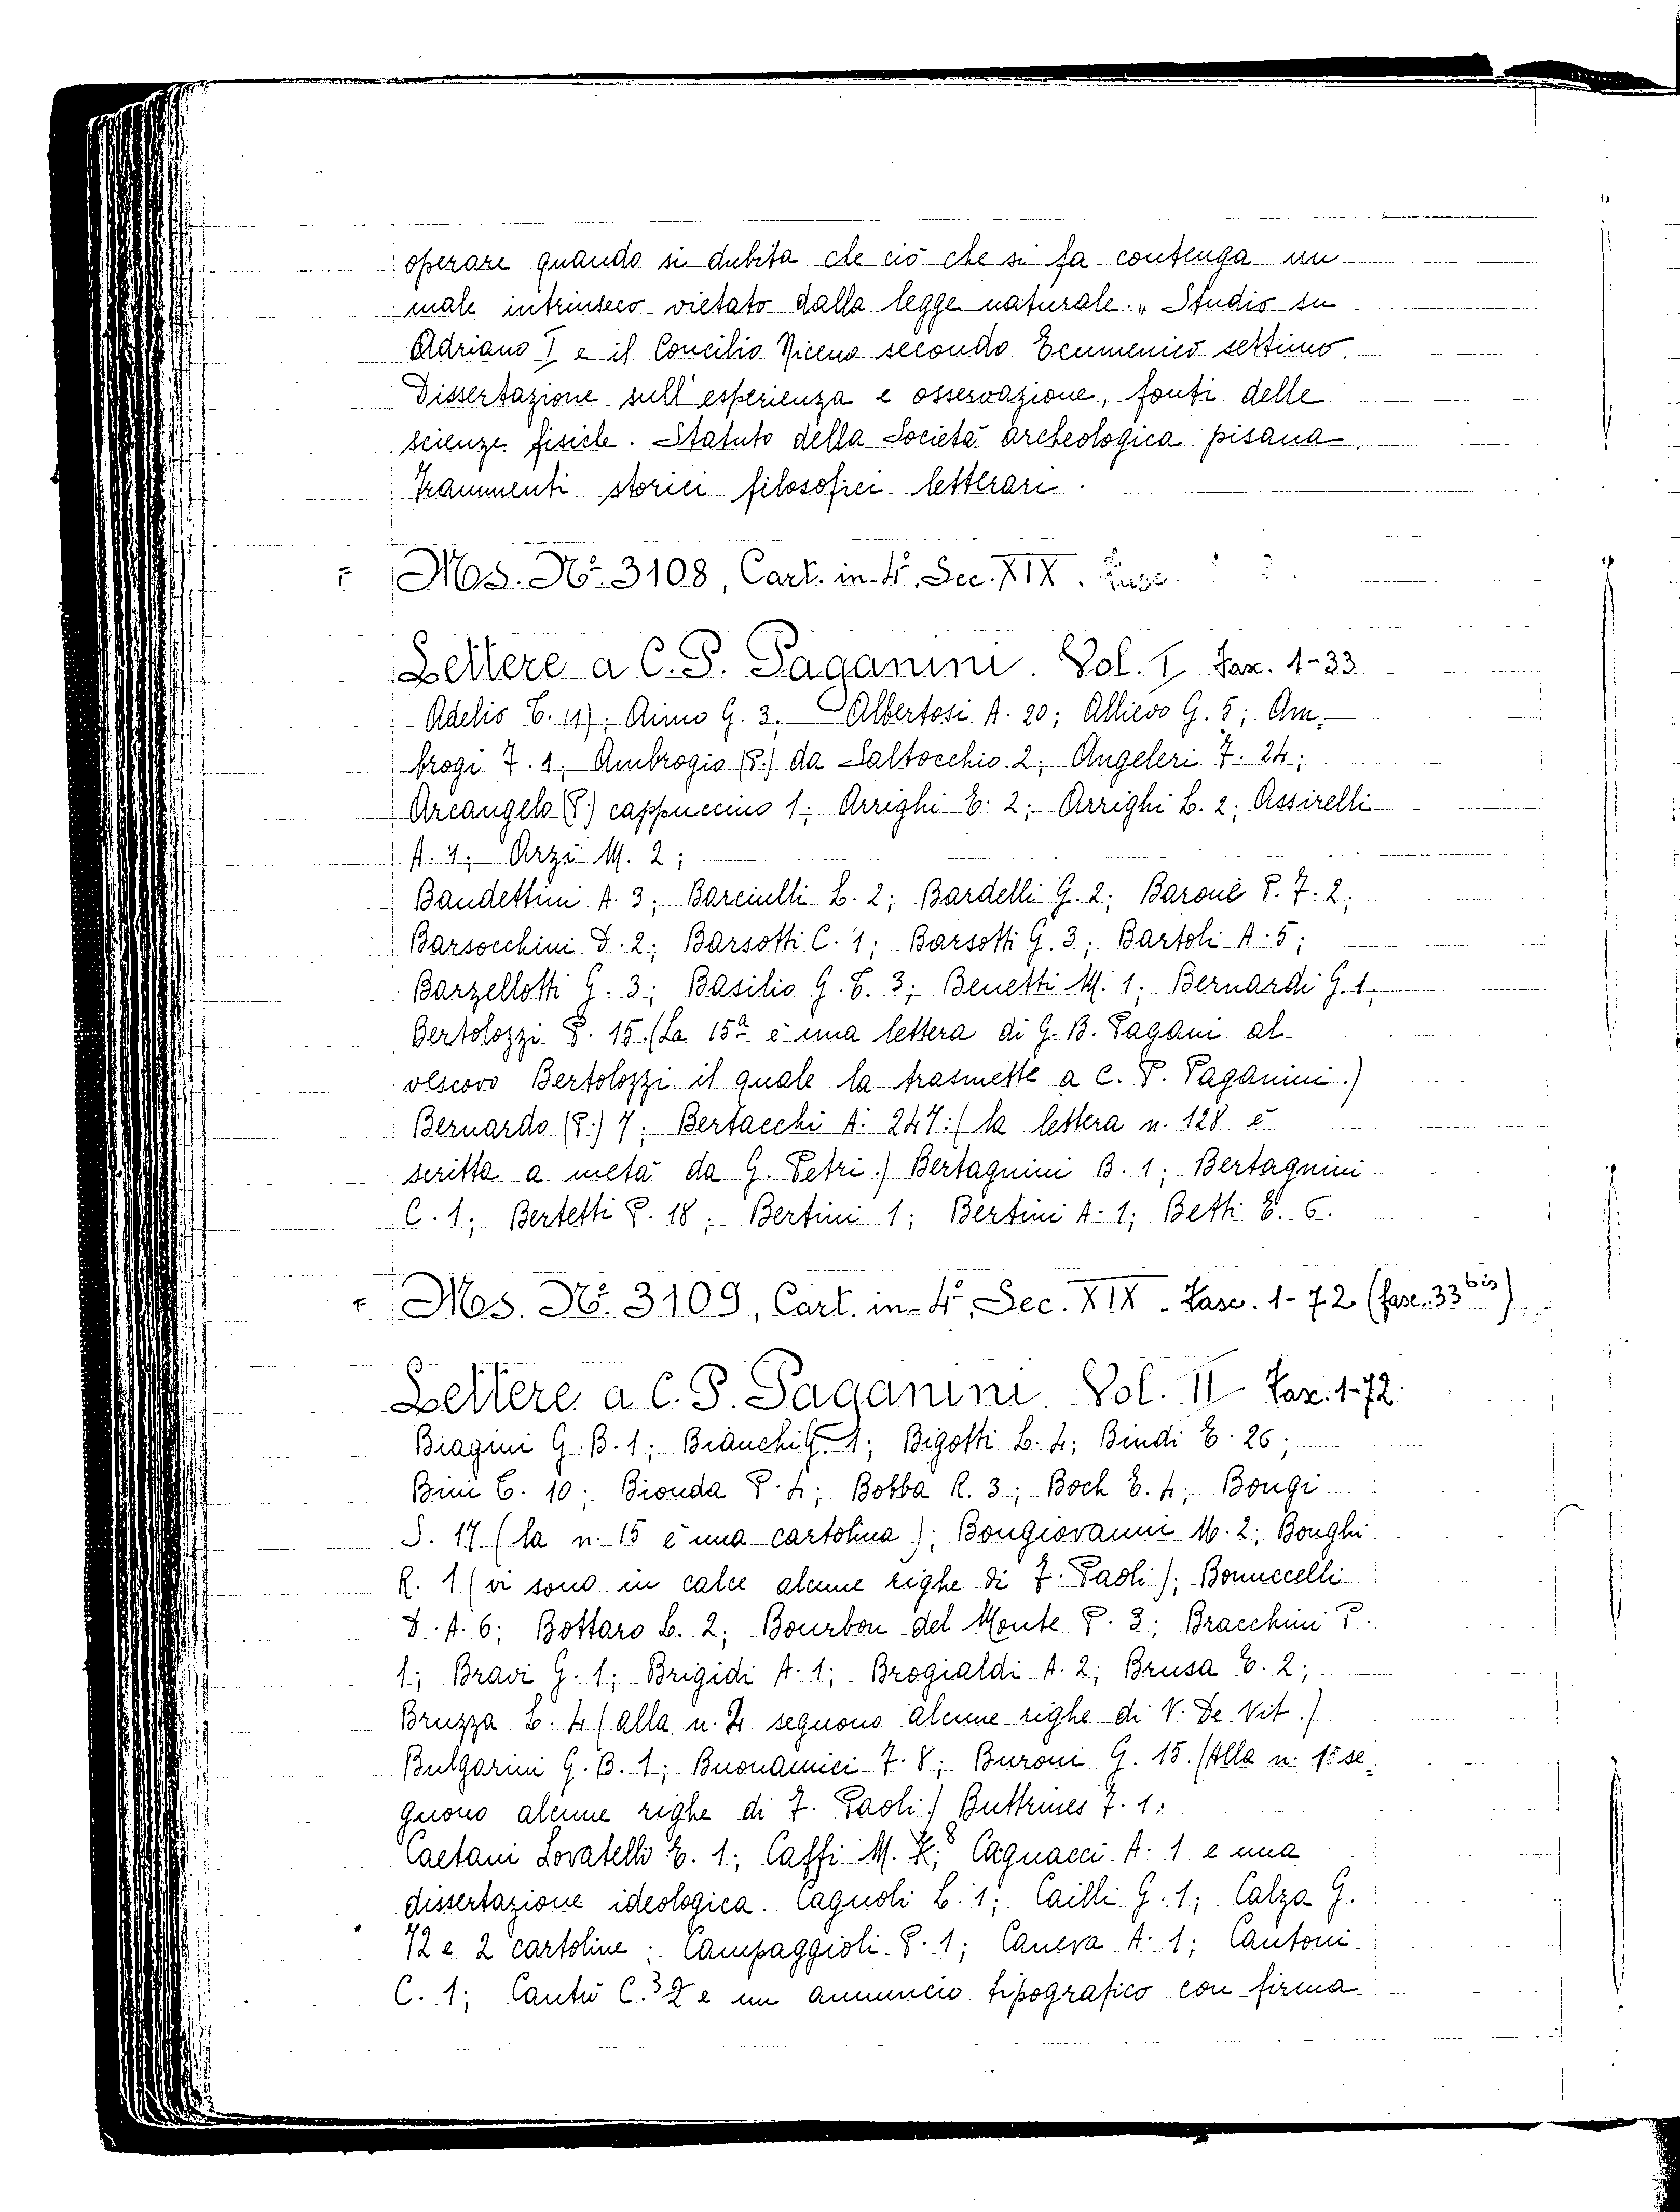 operare quando si dubita che ciò che si fa contenga un
male intrinseco vietato dalla legge naturale. „ Studio su
Adriano I e il Concilio Niceno secondo Ecumenico settimo.
Dissertazione sull'esperienza e osservazione, fonti delle
scienze fisiche. Statuto della Società archeologica pisana
Frammenti storici filosofici letterari.
Mos. Nº. 3108, Cart. in-4º, Sec. XIX.
Lettere a C. P. Paganini. Vol. I Fasc. 1-33
Adelio E. 11). Aimo G. 3. Albertosi A. 20; Allievo G. 5; Am-
brogi F. 1; Ambrogio (P.) da Saltocchio 2; Angeleri F. 24;
Arcangelo (P.) cappuccino 1; Arrighi E. 2; Arrighi L. 2; Assirelli
A. 1; Arzi M. 2;
Bandettini A. 3; Barcinelli L. 2; Bardelli G. 2; Barone P. F. 2;
Barsocchini D. 2; Barsotti C. 1; Barsotti G. 3; Bartoli A. 5;
Barzellotti G. 3; Basilio G. E. 3; Benetti M. 1; Bernardi G. 1;
Bertolozzi P. 15. (La 15ª è una lettera di G. B. Pagani al
vescovo Bertolozzi il quale la trasmette a C. P. Paganini.)
Bernardo (P.) 7; Bertacchi A. 247: (la lettera n. 128 è
scritta a metà da G. Petri.) Bertagnini B. 1; Bertagnini
C. 1; Bertetti P. 18; Bertini 1; Bertini A. 1; Betti E. 6.
Mos. Nº. 3109, Cart. in-4º, Sec. XIX. Fasc. 1-72 (fasc. 33 bis)
Lettere a C. P. Paganini. Vol. II Fasc. 1-72.
Biagini G. B. 1; Bianchi G. 1; Bigotti L. 4; Bindi E. 26;
Bini E. 10; Bionda P. 4; Bobba R. 3; Boch E. 4; Bongi
S. 17 (la n. 15 è una cartolina); Bongiovanni M. 2; Bonghi
R. 1 (vi sono in calce alcune righe di F. Paoli); Bonuccelli
D. A. 6; Bottaro L. 2; Bourbon del Monte P. 3; Bracchini P.
1; Bravi G. 1; Brigidi A. 1; Brogialdi A. 2; Brusa E. 2;
Bruzza L. 4 (alla n. 4 seguono alcune righe di V. De Vit.)
Bulgarini G. B. 1; Buonamici F. 8; Buroni G. 15. (Alla n. 15 se-
guono alcune righe di F. Paoli.) Buttrines F. 1:
Caetani Lovatelli E. 1; Caffi M. 8; Cagnacci A: 1 e una
dissertazione ideologica. Cagnoli L. 1; Cailli G. 1; Calza G.
72 e 2 cartoline; Campaggioli P. 1; Caneva A. 1; Cantoni
C. 1; Cantù C. 3 e un annuncio tipografico con firma